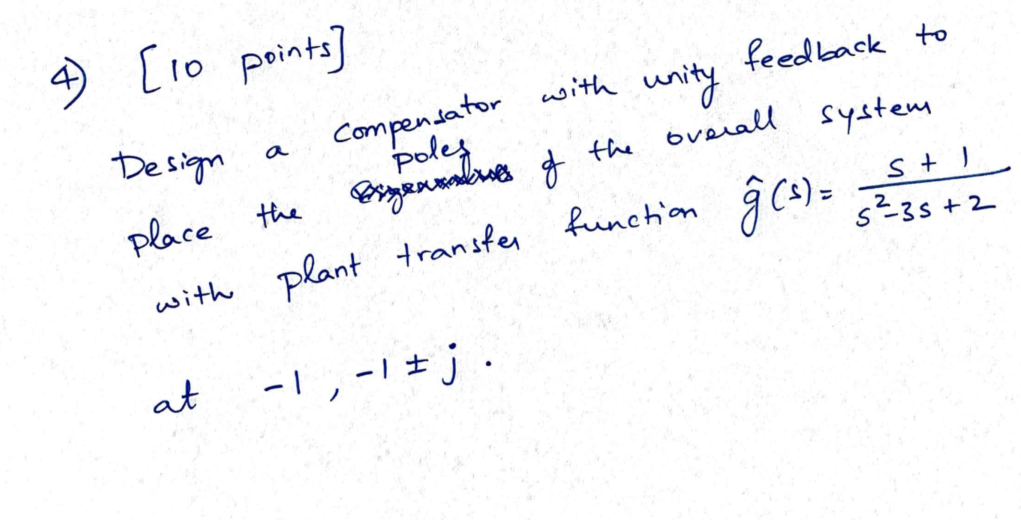 4) [10 points]
Design a compensator with unity feedback to
place the poles of the overall system
with plant transfer function ĝ(s) = (s + 1)/(s² - 3s + 2)
at -1, -1 ± j.